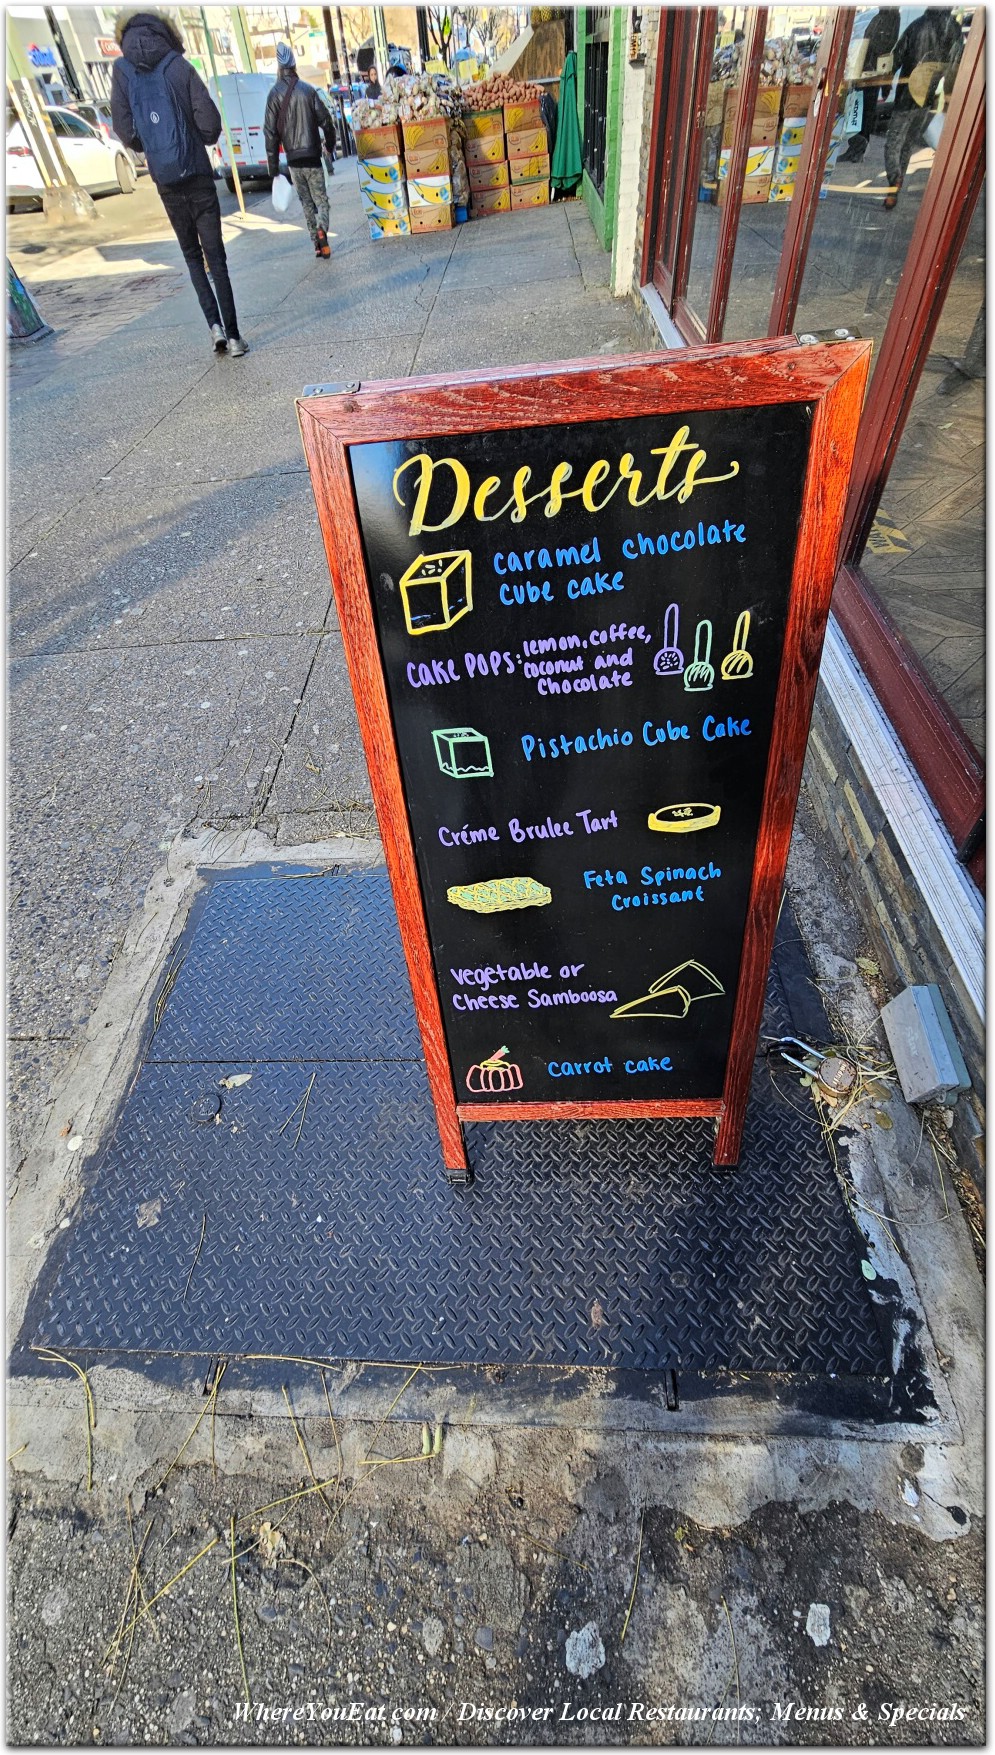 Desserts
caramel chocolate
cube cake
cake pops: lemon, coffee,
coconut and
chocolate
Pistachio Cube Cake
Créme Brulee Tart
Feta Spinach
Croissant
vegetable or
cheese Samboosa
carrot cake
WhereYouEat.com / Discover Local Restaurants, Menus & Specials